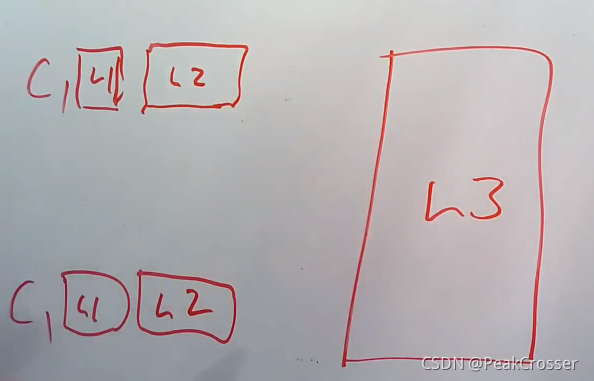 C1 L1 L2
L3
C1 L1 L2
CSDN @PeakCrosser